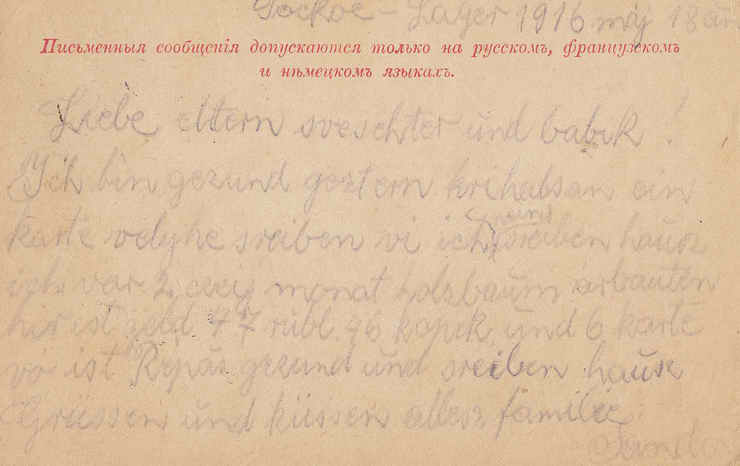 Lager 1916 máj 18 án
Письменныя сообщенія допускаются только на русскомъ, французскомъ
и нѣмецкомъ языкахъ.
Liebe eltern sveschter und babik!
Ich bin gezund gestern krihabsam ein
karte velyhe sreiben vi ich sreiben hausz
ich var 2 monat holzbaum arbauten
hir ist zeld 47 rubl. 96 kopek und 6 karte
vo ist Repás gezund und sreiben hausz
Grüssen und küssen allesz familie